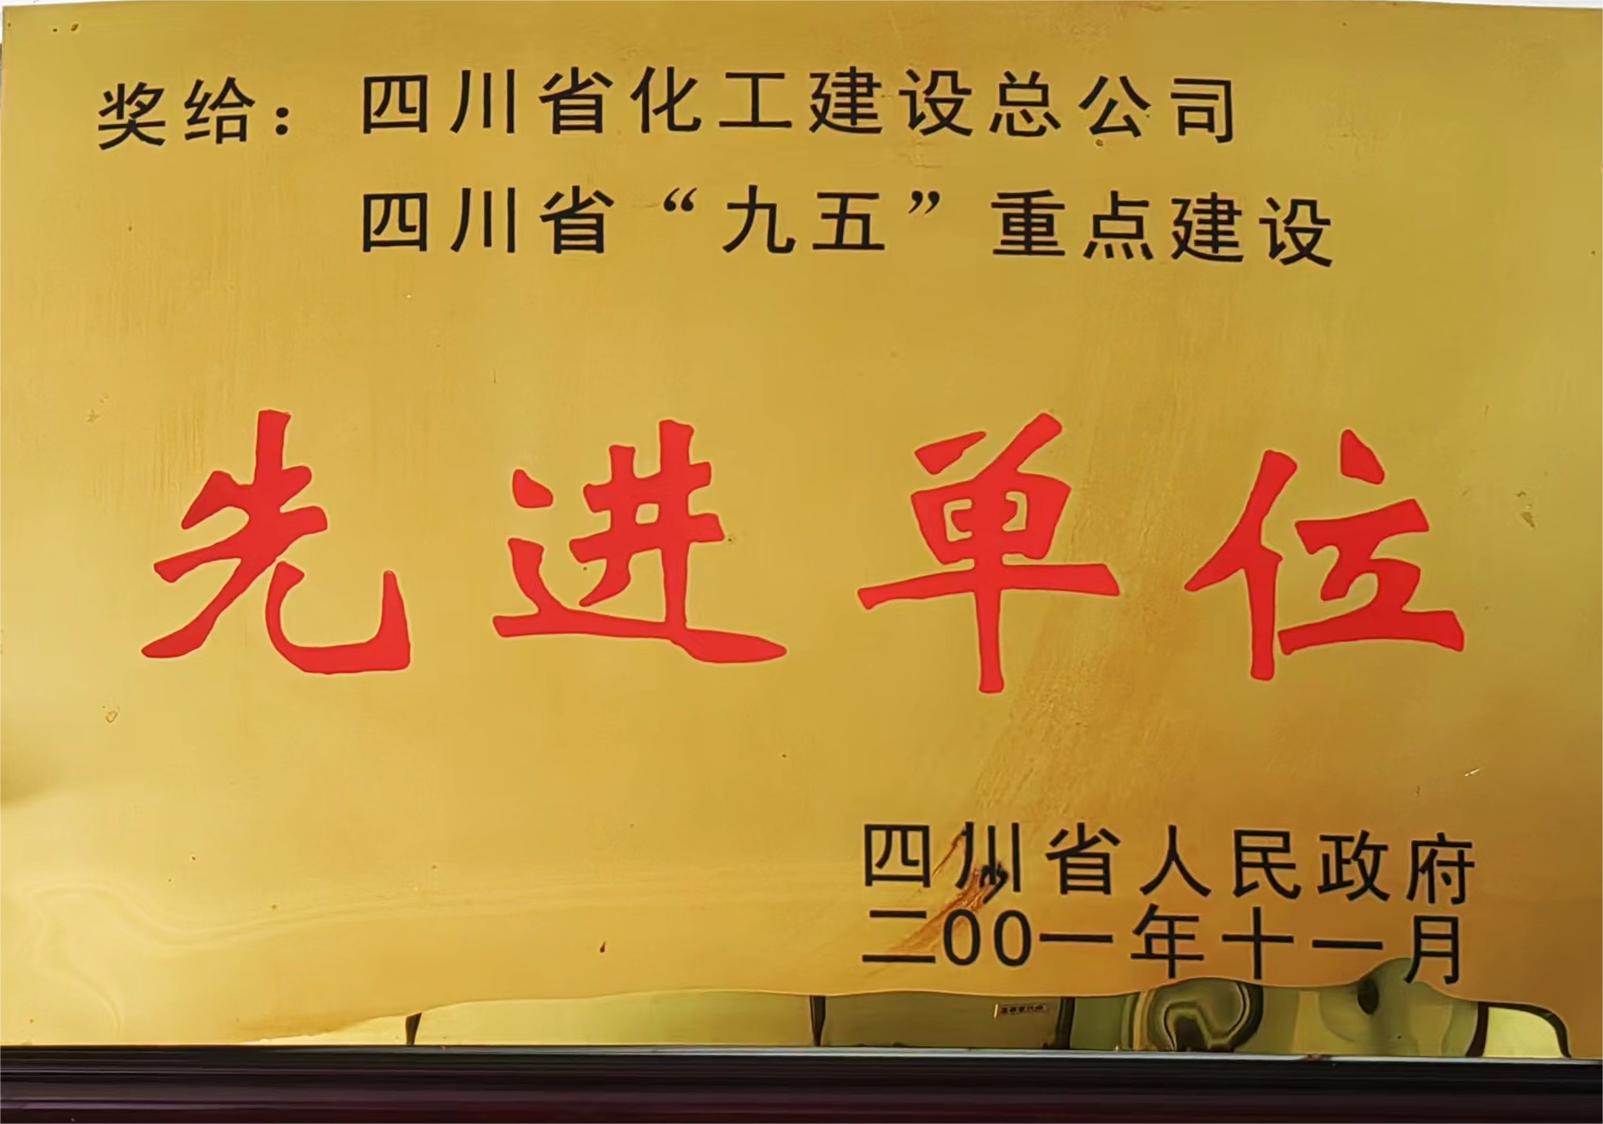 奖给：四川省化工建设总公司
四川省“九五”重点建设
先进单位
四川省人民政府
二00一年十一月